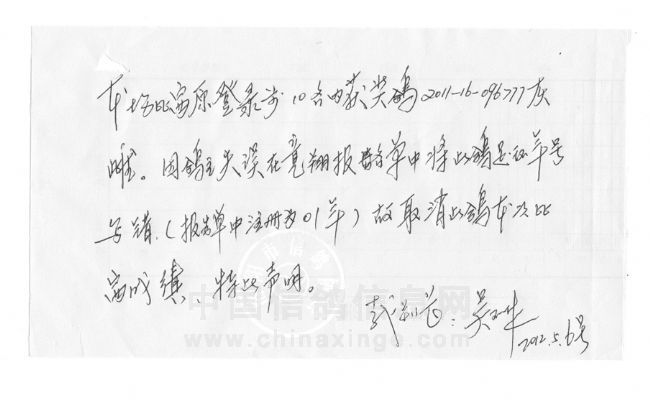 本场比赛原登录前10名内获奖鸽2011-16-096777灰
雌。因鸽主失误在竞翔报单中将此鸽足环年号
写错（报单中注册为01年）故取消此鸽本次比
赛成绩、特此声明。
裁判长：吴
2012.5.6号
中国信鸽信息网
www.chinaxinge.com